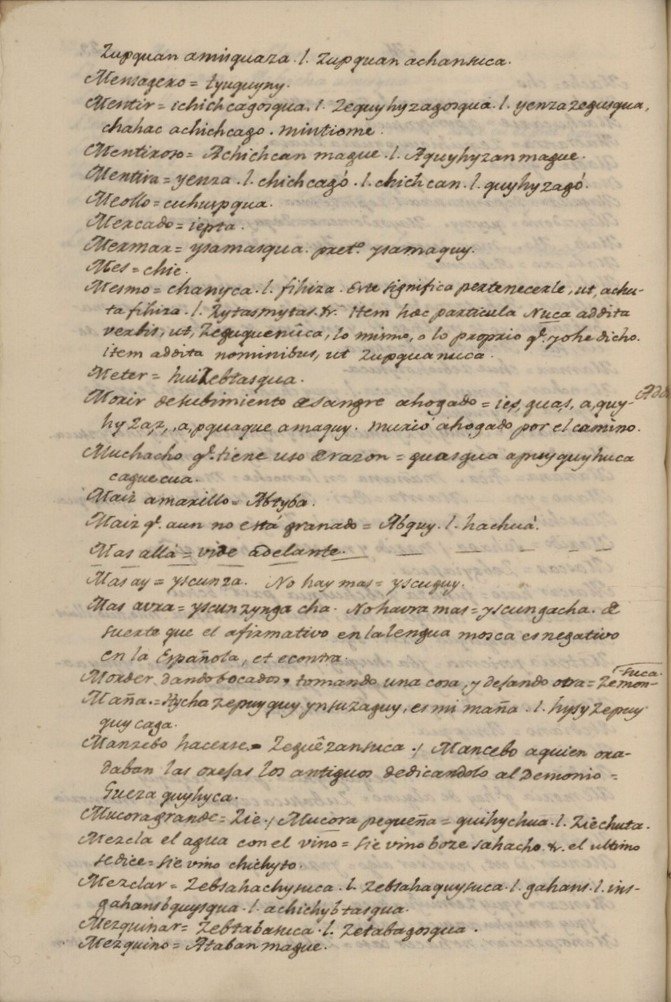 Zupquan amisquaza . l . Zupquan achansuca .
Mensagero = tyuquyny .
Mentir = ichichcagosqua . l . Zequyhyzagosqua . l . yenzazegusqua ,
chahac achichcago . mintiome .
Mentiroso = Achichcan mague . l . Aquyhyzan mague .
Mentira = yenza . l . chichcagó . l . chichcan . l . quyhyzagó .
Meollo = cuhuspqua .
Mercado = iepta .
Mermar = ysamasqua . pret.º ysamaquy .
Mes = chie .
Mesmo = chanyca . l . fihiza . Este significa pertenecerle , ut , achu-
ta fihiza . l . Zytas mytas . &. Item hæc particula Nuca addita
verbis , ut , Zeguquenûca , lo mismo , o lo proprio q.e yo he dicho .
item addita nominibus , ut Zupquanuca .
Meter = hui Zebtasqua .
Morir de subimiento de sangre ahogado = ies , quas , a , quy-
hyzaz , a , pquaque amaquy . murió ahogado por el camino .
Muchacho q.e tiene uso de razon = guasgua apuyquyhuca
caguecua .
Maiz amarillo = Abtyba .
Maiz q.e aun no está granado = Abquy . l . hachuá .
Mas allá = vide adelante .
Mas ay = yscunza . No hay mas = yscuguy .
Mas avra = yscunzynga cha . No havra mas = yscungacha . de
suerte que el afirmativo en la lengua mosca es negativo
en la Española , et econtra .
Morder dando bocados , tomando una cosa , y dejando otra = Zemon-
suca .
Maña = Hycha zepuyquy ynsuzaguy , es mi maña . l . hysy Zepuy
quy caga .
Manzebo hacerse = Zeguêzansuca . / Mancebo a quien ora-
daban las orejas los antiguos dedicandolo al Demonio =
Gueza quyhyca .
Mucora grande = Zie . / Mucora pequeña = quihychua . l . Ziechuta .
Mezcla el agua con el vino = sie vino boze sahacho . &. el ultimo
se dice = sie vino chichyto .
Mezclar = Zebsahachysuca . l . Zebsahaquysuca . l . gahans . l . ins-
gahansbquysqua . l . achichybtasqua .
Mezquinar = Zebtabasuca . l . Zetabagosqua .
Mezquino = Ataban mague .